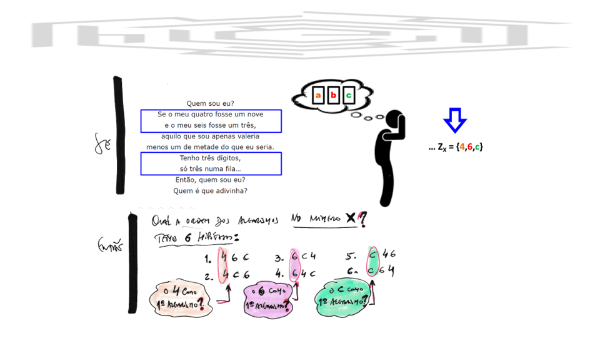 Quem sou eu?
Se o meu quatro fosse um nove
e o meu seis fosse um três,
aquilo que sou apenas valeria
menos um de metade do que eu seria.
Tenho três dígitos,
só três numa fila...
Então, quem sou eu?
Quem é que adivinha?
a b c
... Zx = {4,6,c}
SE
ENTÃO
QUAL A ORDEM DOS ALGARISMOS NO NÚMERO X?
TENHO 6 HIPÓTESES:
1. 4 6 C
2. 4 C 6
3. 6 C 4
4. 6 4 C
5. C 4 6
6. C 6 4
O 4 COMO
1º ALGARISMO?
O 6 COMO
1º ALGARISMO?
O C COMO
1º ALGARISMO?